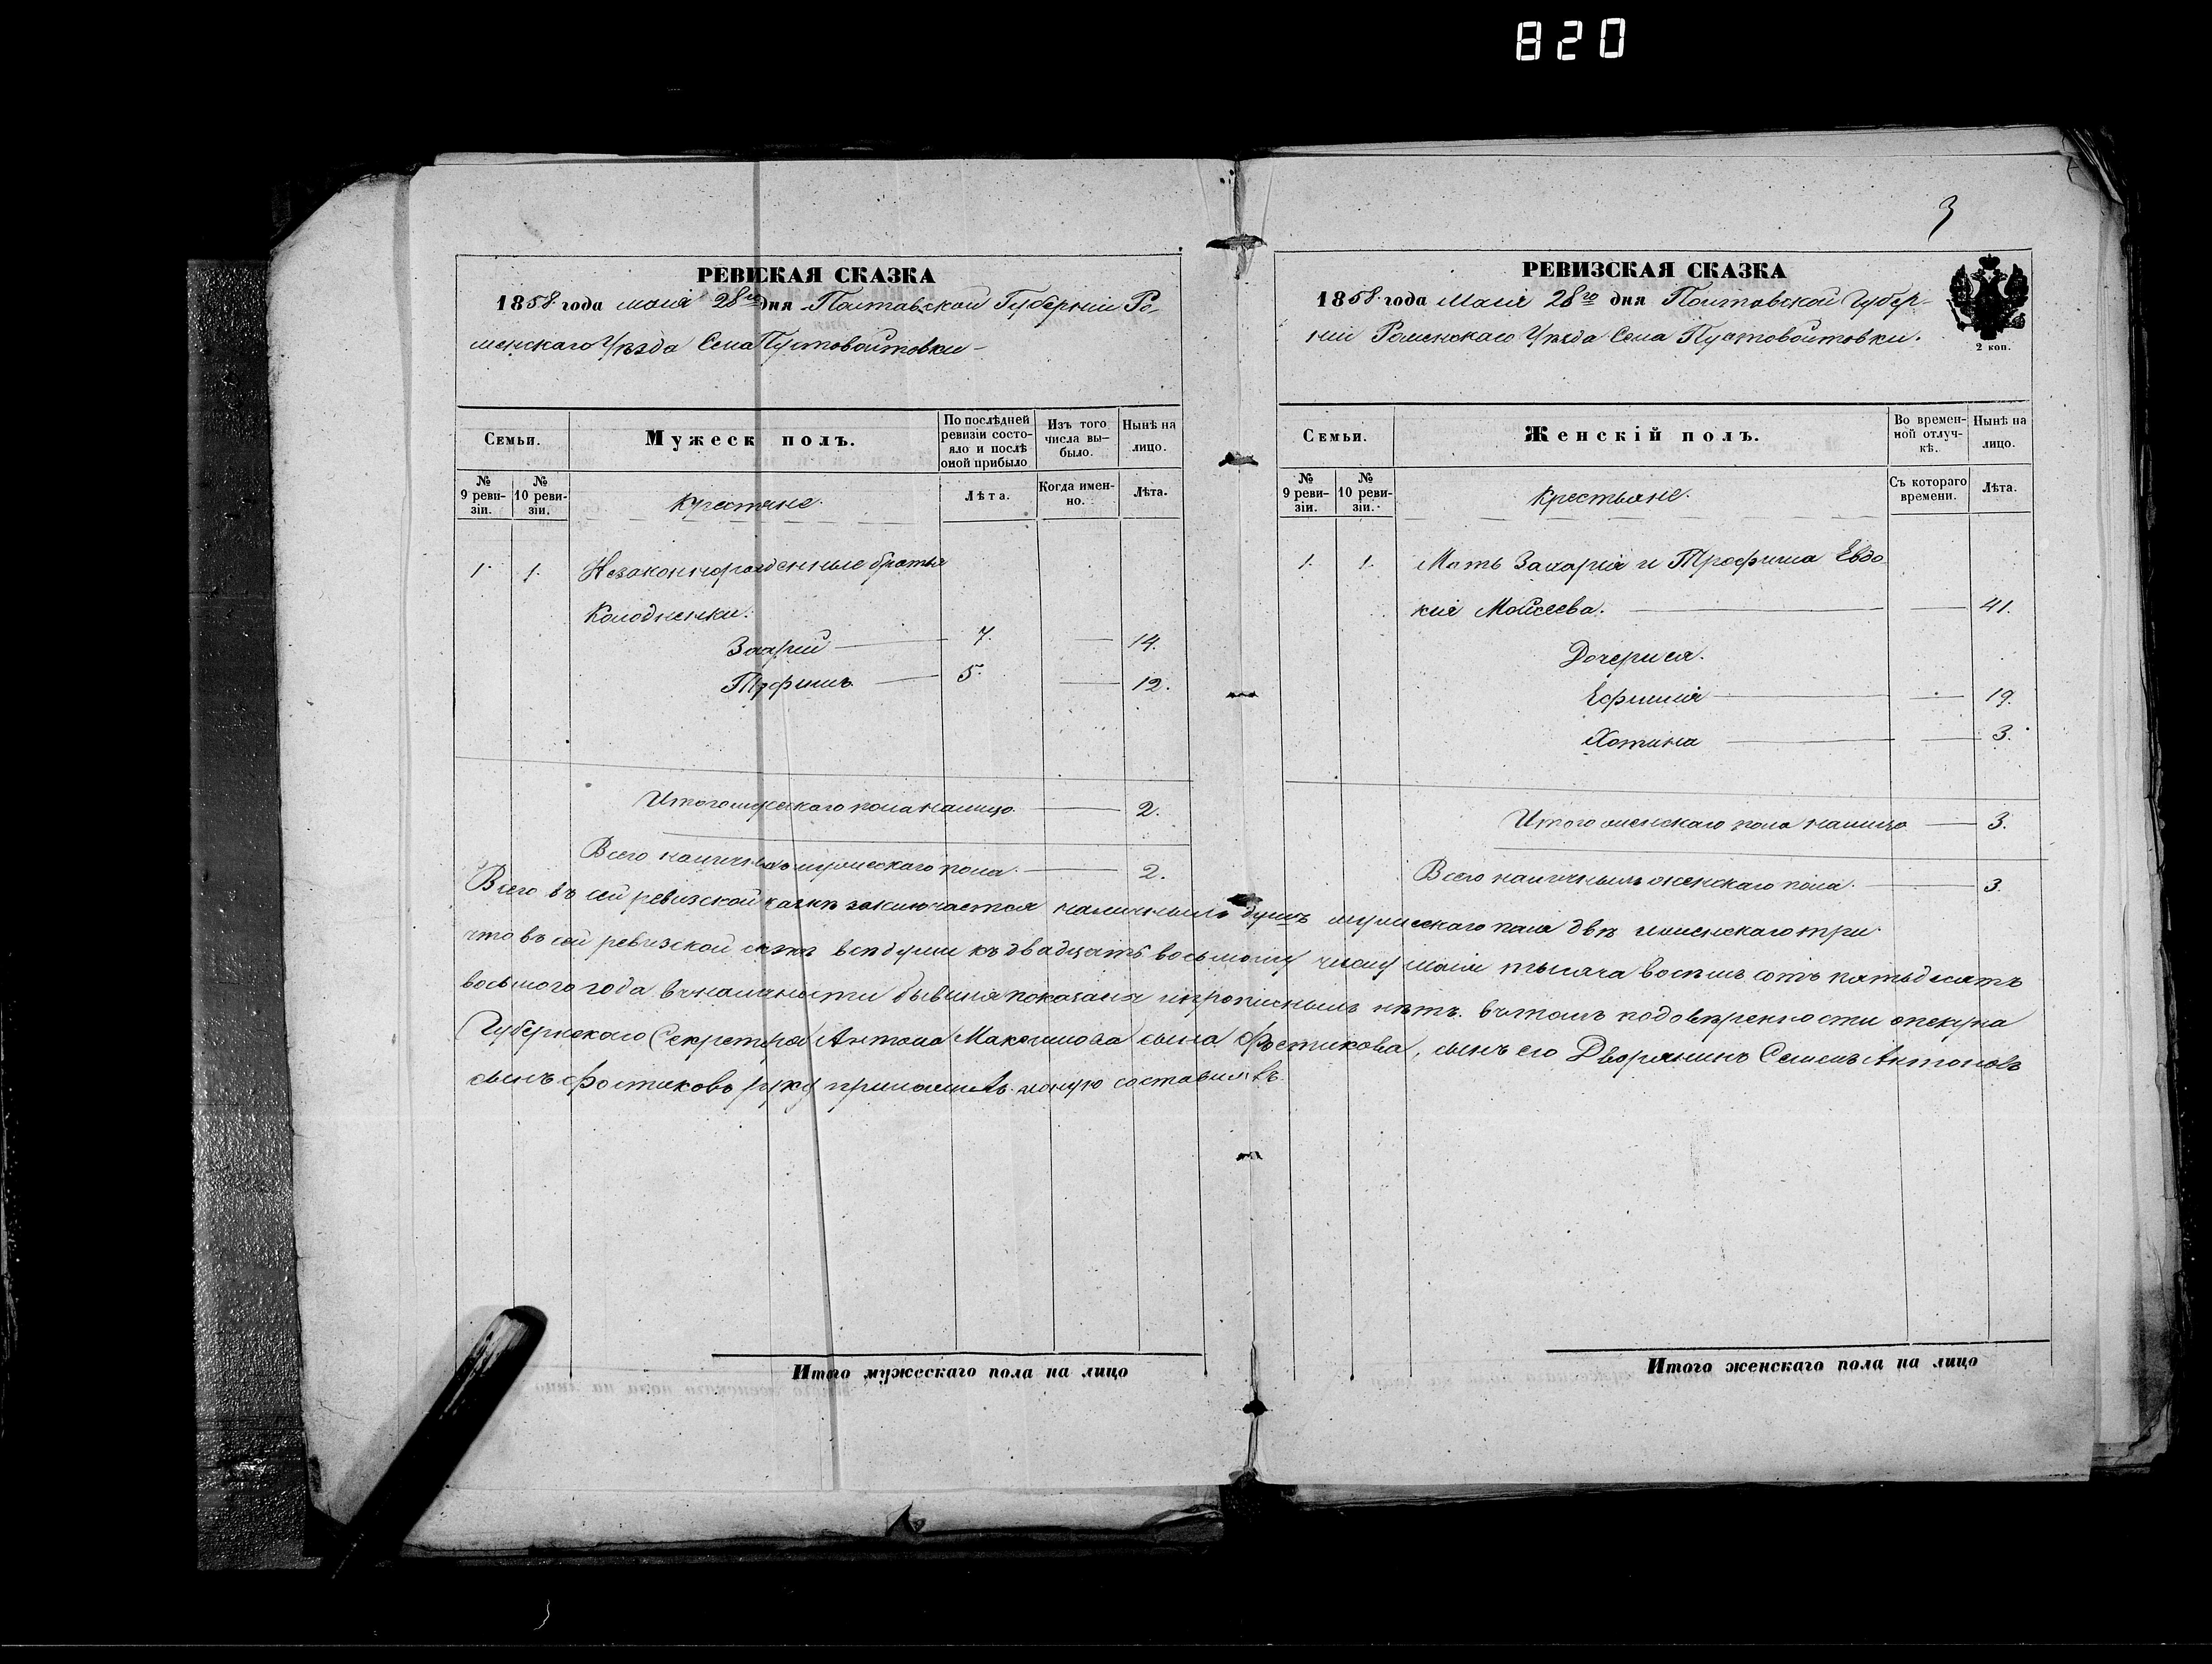 820
3
РЕВИЗСКАЯ СКАЗКА
1858 года маія 28го дня Полтавской Губерніи Ро-
менскаго Уѣзда Села Пустовойтовки
Семьи.
Мужеск полъ.
По послѣдней ревизіи состо- яло и послѣ оной прибыло
Изъ того числа вы- было.
Нынѣ на лицо.
№ 9 реви- зіи.
№ 10 реви- зіи.
Крестяне.
Лѣта.
Когда имен- но.
Лѣта.
1. 1. Незаконнорожденные братья
Колодненки:
Захарій 7. 14.
Трофимъ 5. 12.
Итого мужескаго пола налицо 2.
Всего наличныхъ мужескаго пола 2.
РЕВИЗСКАЯ СКАЗКА
1858 года Маія 28го дня Полтавской Губер-
ніи Роменскаго Уѣзда Села Пустовойтовки.
2 коп.
Семьи.
Женскій полъ.
Во времен- ной отлуч- кѣ.
Нынѣ на лицо.
№ 9 реви- зіи.
№ 10 реви- зіи.
Крестьяне.
Съ котораго времени.
Лѣта.
1. 1. Мать Захарія и Трофима Евдо
кія Моисеева. 41.
Дочери ея.
Ефимія 19.
Хотина 3.
Итого женскаго пола налицо 3.
Всего наличныхъ женскаго пола 3.
Всего въ сей ревизской сказкѣ заключается наличныхъ душъ мужескаго пола двѣ и женскаго три.
что въ сей ревизской сказкѣ всѣ души къ двадцать восьмому числу маія тысяча восемь сотъ пятьдесятъ
восьмого года въ наличности бывшія показаны и прописныхъ нѣтъ. въ томъ по довѣренности опекуна
Губернскаго Секретаря Антона Максимова сына Фостикова, сынъ его Дворянинъ Семенъ Антоновъ
сынъ Фостиковъ руку приложилъ и оную составилъ.
Итого мужескаго пола на лицо
Итого женскаго пола на лицо